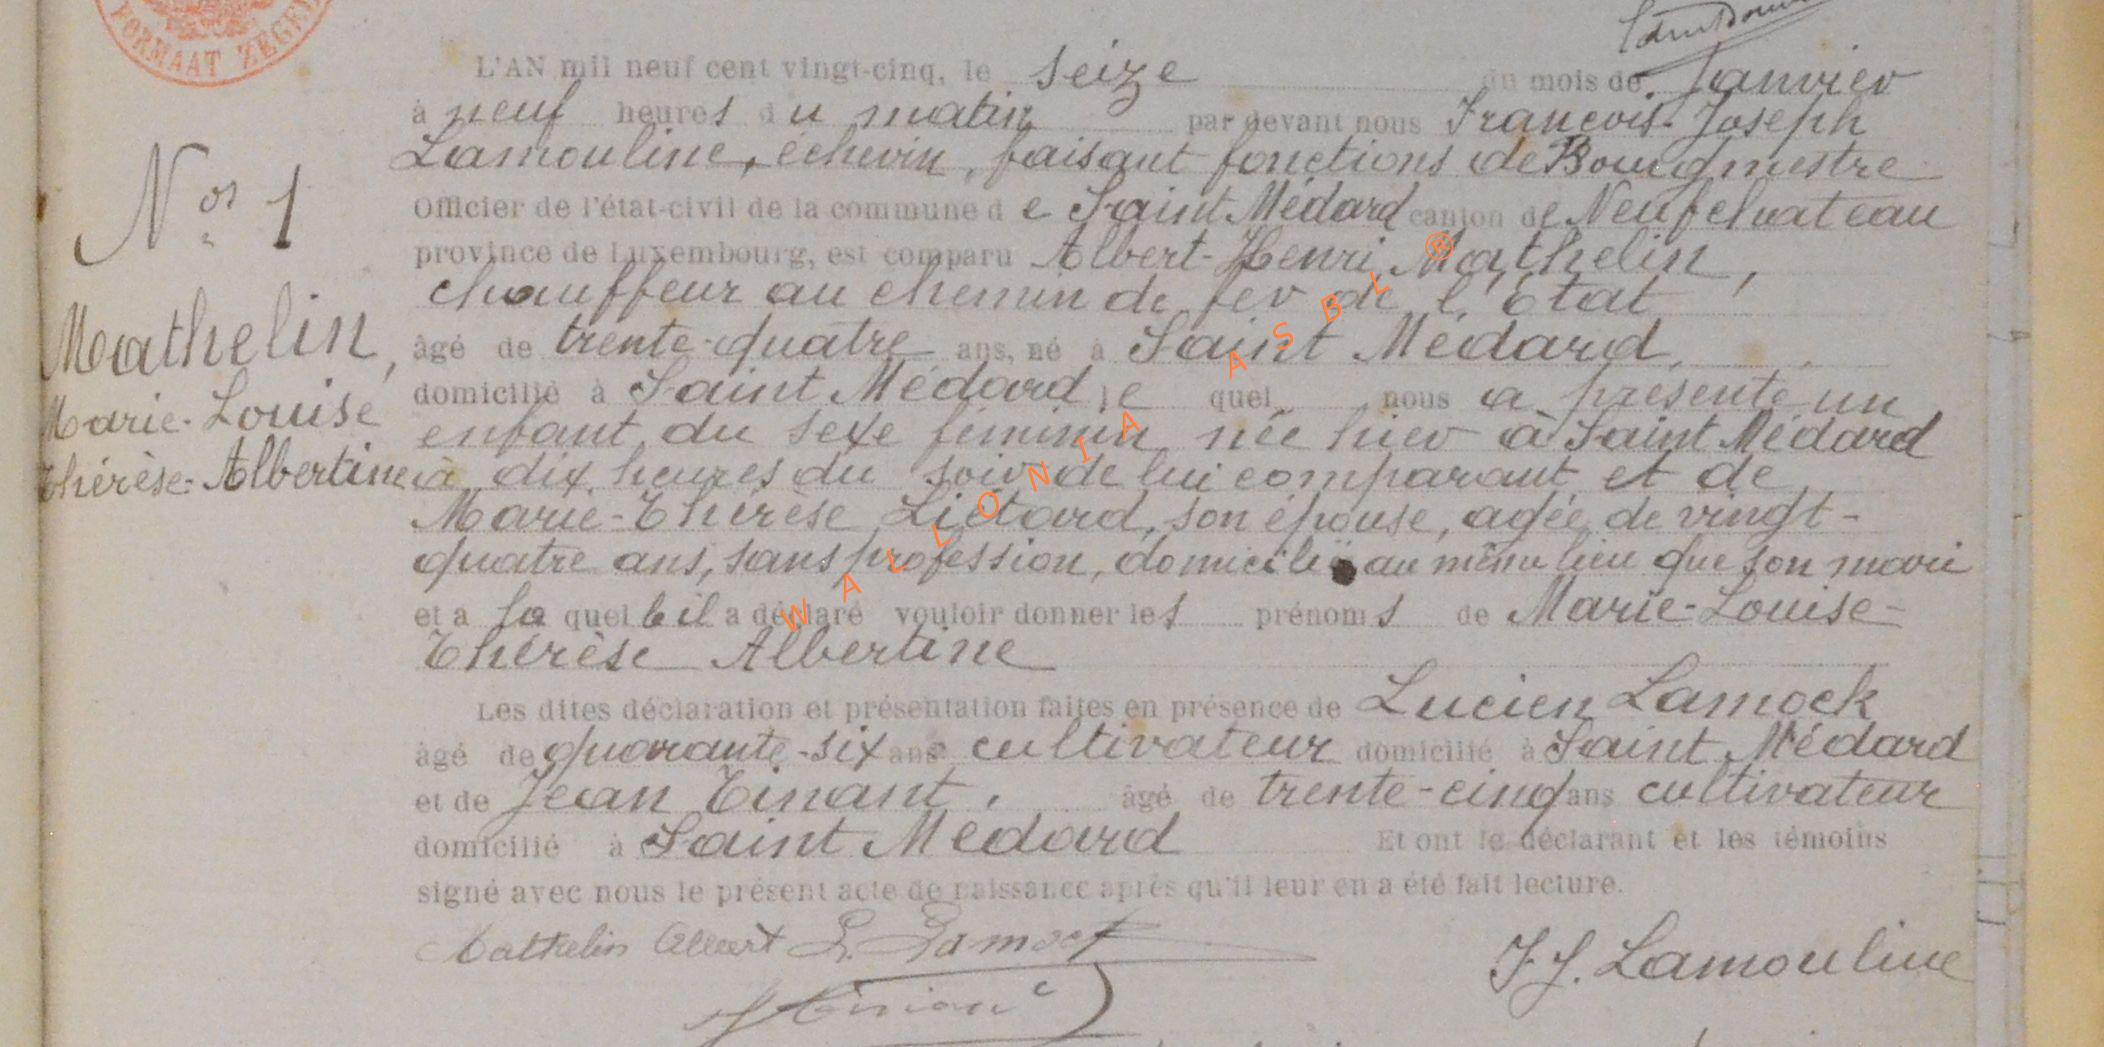 FORMAAT ZEGEL
L'AN mil neuf cent vingt-cinq, le seize du mois de Janvier
à neuf heures du matin par devant nous François-Joseph
Lamouline, échevin, faisant fonctions de Bourgmestre
Officier de l'état-civil de la commune de Saint Médard canton de Neufchateau
province de Luxembourg, est comparu Albert-Henri Mathelin,
chauffeur au chemin de fer de l'Etat
âgé de trente-quatre ans, né à Saint Médard,
domicilié à Saint Médard, le quel nous a présenté un
enfant du sexe féminin née hier à Saint Médard
à dix heures du soir de lui comparant et de
Marie-Thérèse Liétard, son épouse, agée de vingt-
quatre ans, sans profession, domicilié au même lieu que son mari
et a la quelle il a déclaré vouloir donner les prénoms de Marie-Louise-
Thérèse Albertine
Les dites déclaration et présentation faites en présence de Lucien Lamock
âgé de quarante-six ans cultivateur domicilié à Saint Médard
et de Jean Tinant, âgé de trente-cinq ans cultivateur
domicilié à Saint Médard Et ont le déclarant et les témoins
signé avec nous le présent acte de naissance après qu'il leur en a été fait lecture.
Mathelin Albert L. Lamock
J Tinant
F. J. Lamouline
Nos 1
Mathelin,
Marie-Louise
Thérèse-Albertine
WALLONIA ASBL ®